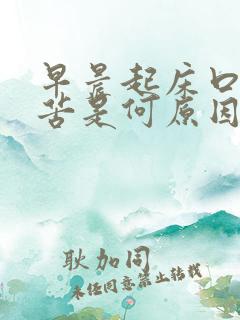 早晨起床口
苦是何原因
耿加同
未经同意禁止转载